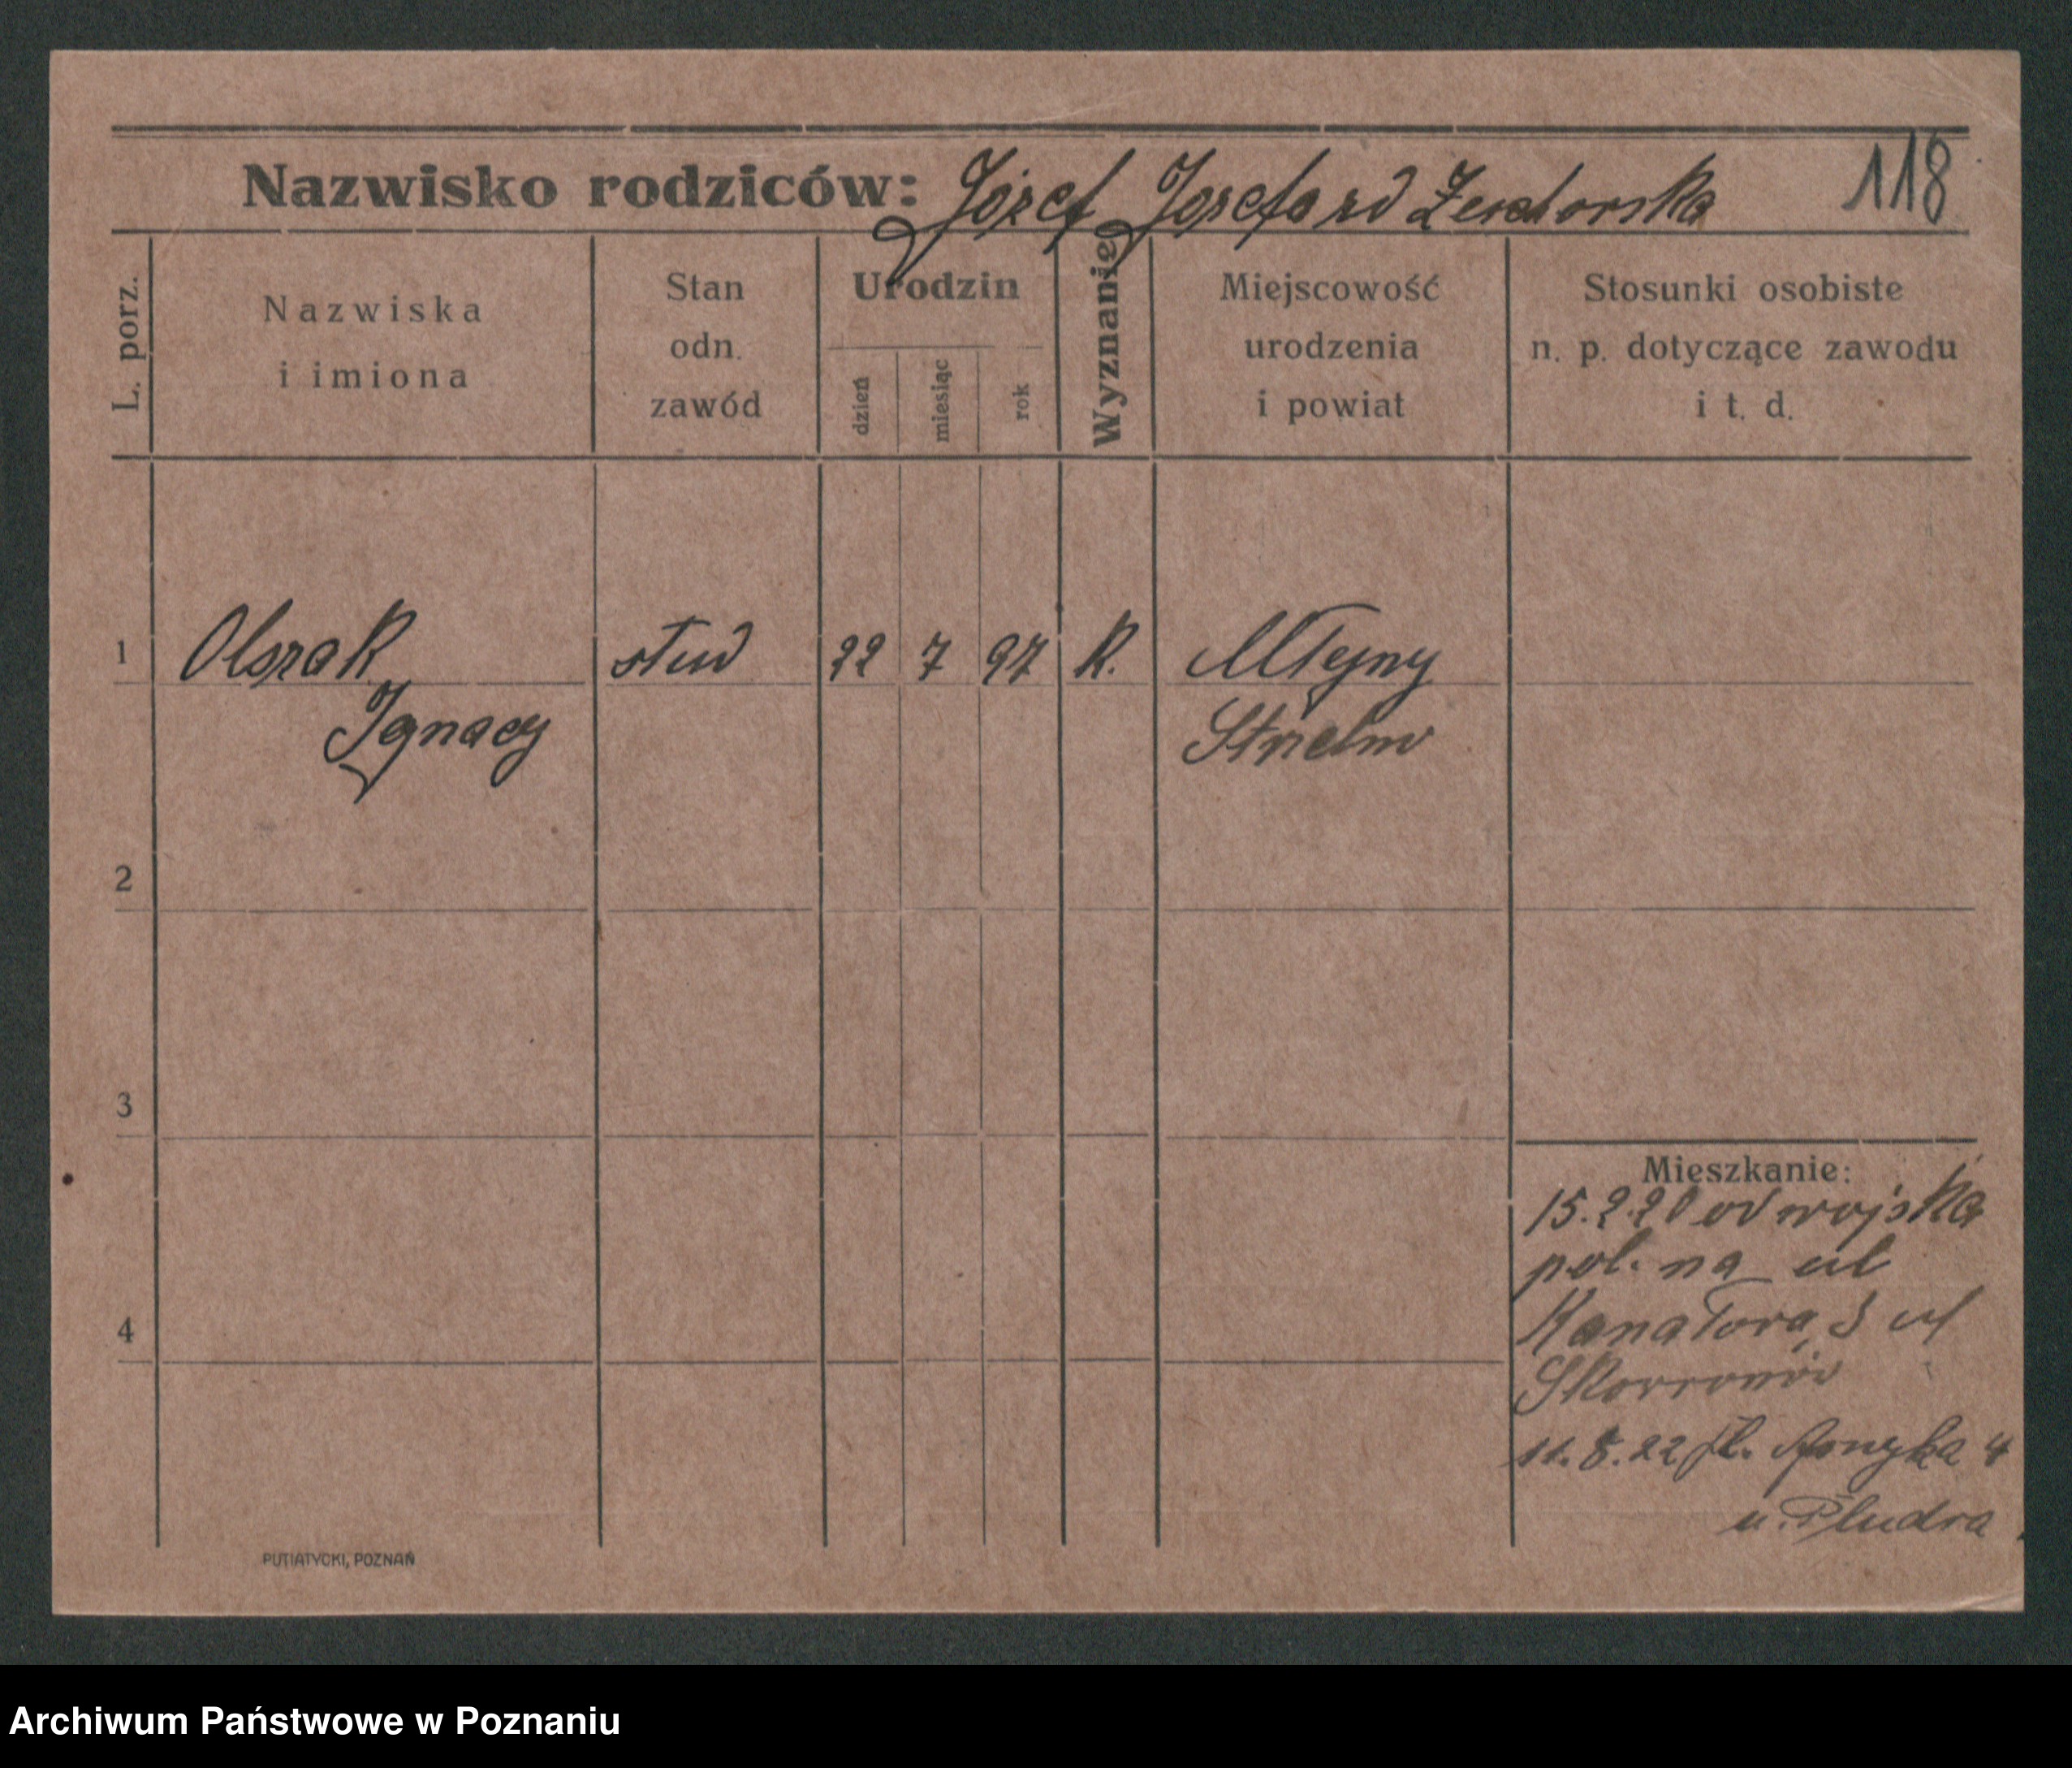 118
Nazwisko rodziców: Józef Josefa rd
L. porz.
Nazwiska
i imiona
Stan
odn.
zawód
Urodzin
dzień
miesiąc
rok
Wyznanie
Miejscowość
urodzenia
i powiat
Stosunki osobiste
n. p. dotyczące zawodu
i t. d.
1 Olszak stud 22 7 97 K. Młyny
Ignacy Strzelno
2
3
4
Mieszkanie:
15.2.20 od wojska
pol. na ul
3 ul
11.8.22 pl. Asnyka 4
u. Pludra
PUTIATYCKI, POZNAŃ
Archiwum Państwowe w Poznaniu